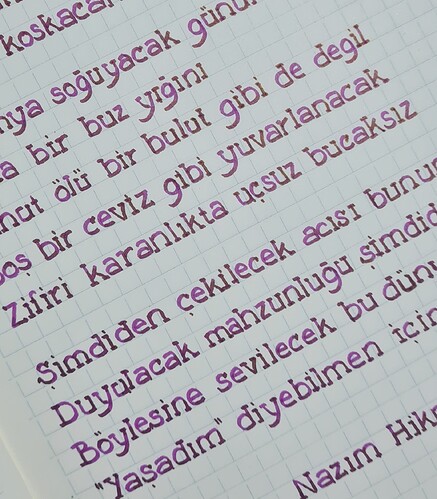 koskocan
soğuyacak günün
bir buz yığını
ölü bir bulut gibi de değil
boş bir ceviz gibi yuvarlanacak
Zifiri karanlıkta uçsuz bucaksız
Şimdiden çekilecek acısı bunun
Duyulacak mahzunluğu şimdid
Böylesine sevilecek bu düny
"Yaşadım" diyebilmen için
Nazım Hikm